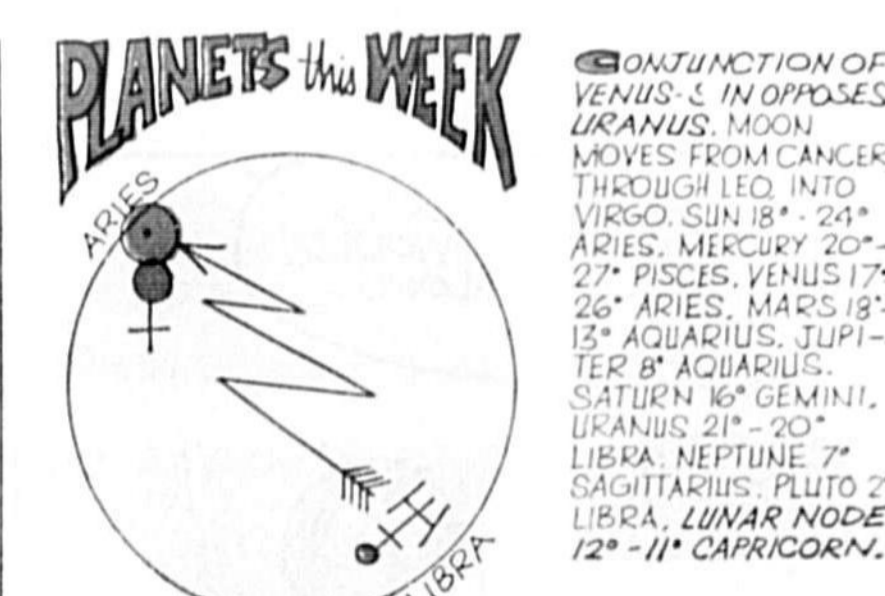 PLANETS this WEEK
ARIES
LIBRA
CONJUNCTION OF
VENUS-& IN OPPOSES
URANUS. MOON
MOVES FROM CANCER
THROUGH LEO, INTO
VIRGO. SUN 18° - 24°
ARIES. MERCURY 20°-
27° PISCES. VENUS 17°-
26° ARIES. MARS 18°-
13° AQUARIUS. JUPI-
TER 8° AQUARIUS.
SATURN 16° GEMINI.
URANUS 21° - 20°
LIBRA. NEPTUNE 7°
SAGITTARIUS. PLUTO 2°
LIBRA. LUNAR NODE
12° - 11° CAPRICORN.